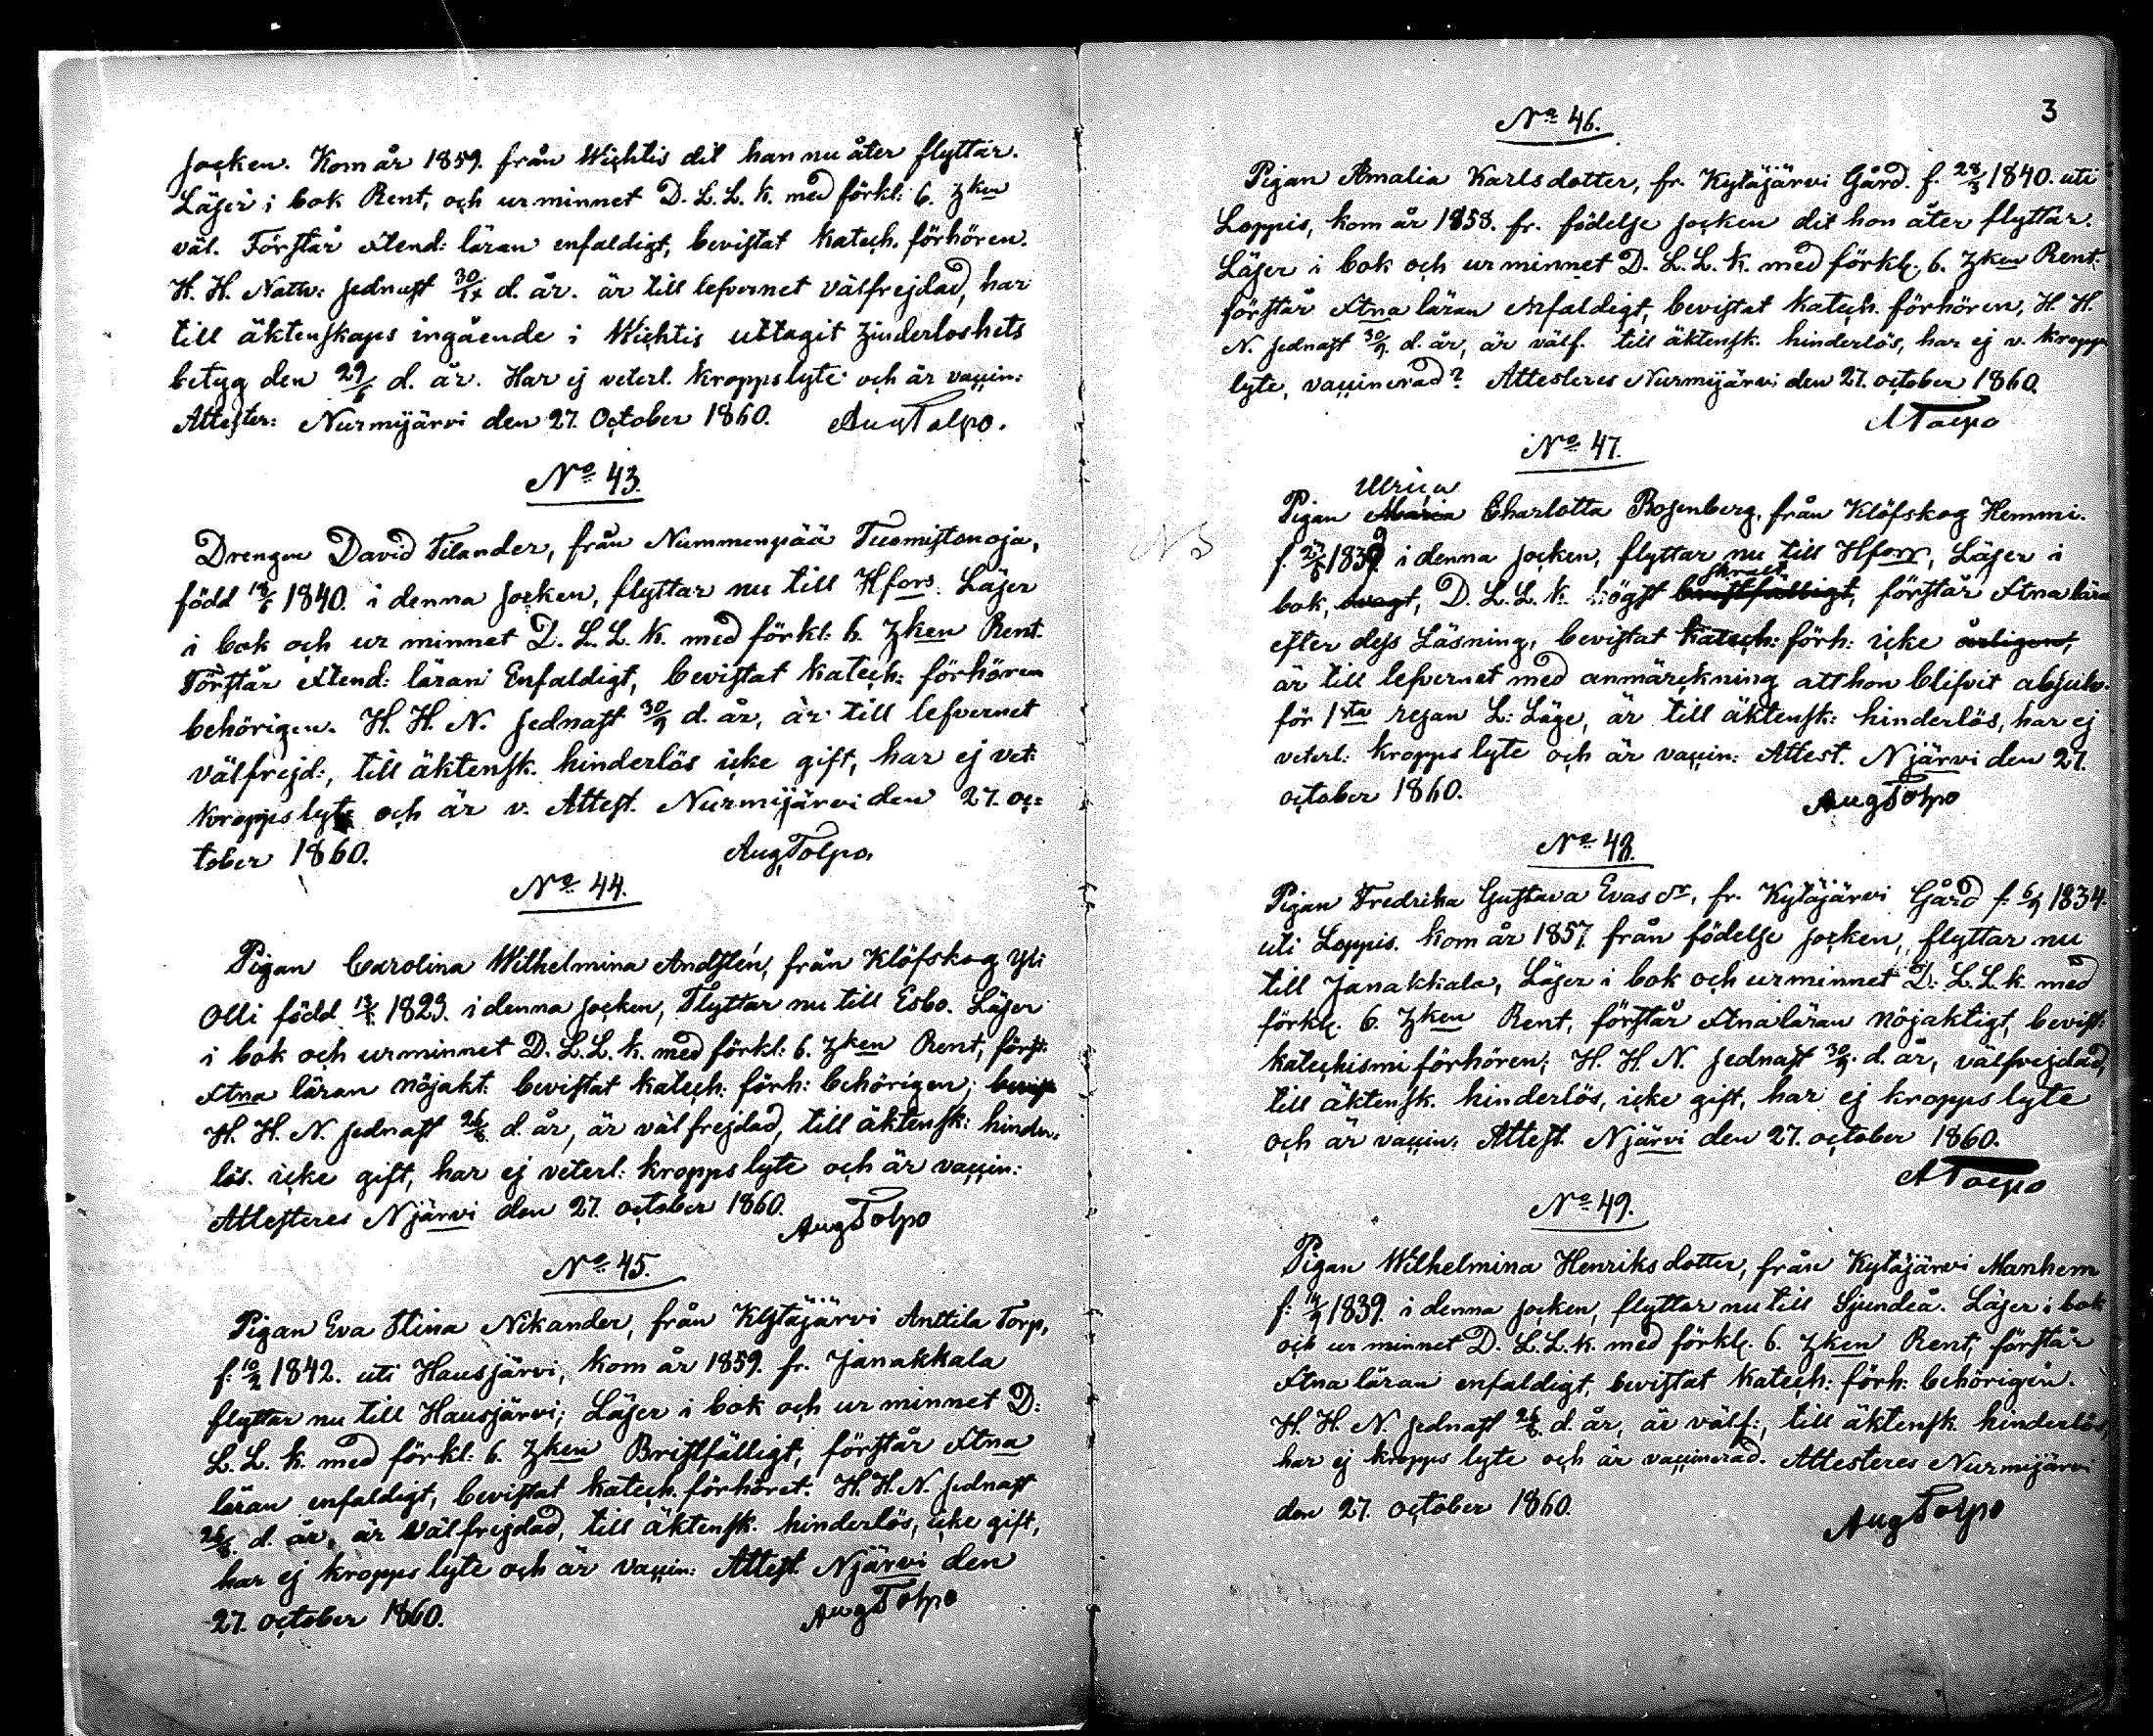 Socken. Kom år 1859. från Wichtis dit han nu åter flyttar.
Läser i bok Rent, och ur minnet D. L. L. k. med förkl: 6. Zken
väl. Förstår Xtend: läran enfaldigt, bevistat Katech. förhören.
H. H. Nattv: sednast d. år. är till lefvernet välfrejdad, har
till äktenskaps ingående i Wichtis uttagit hinderloshets
betyg den d. år. Har ej veterl. kroppslyte och är vaccin:
Attester: Nurmijärvi den 27. October 1860. Aug Tolpo.
No 43.
Drengen David Tilander, från Nummenpää Tuomistonoja,
född 1840. i denna Socken, flyttar nu till Hfors. Läser
i bok och ur minnet D. L. L. k. med förkl: 6. Zken Rent.
Förstår Xtend: läran Enfaldigt, bevistat katech: förhören
behörigen. H. H. N. sednast 30/9 d. år, är till lefvernet
välfrejd:, till äktensk. hinderlös icke gift, har ej vet:
kroppslyte och är v. Attest. Nurmijärvi den 27. oc=
tober 1860. Aug Tolpo.
No 44.
Pigan Carolina Wilhelmina Andstén, från Klöfskog Yli
Olli född 1823. i denna Socken, Flyttar nu till Esbo. Läser
i bok och ur minnet D. L. L. k. med förkl: 6. Zken Rent, först:
Xtna läran nöjakt. bevistat katech: förh: behörigen;
H. H. N. sednast d. år, är väl frejdad, till äktensk: hinder=
lös. icke gift, har ej veterl: kroppslyte och är vaccin:
Attesteres Njärvi den 27. october 1860. Aug Tolpo
No 45.
Pigan Eva Stina Nikander, från Kytäjärvi Anttila Torp,
f. 10/2 1842. uti Hausjärvi, kom år 1859. fr. Janakkala
flyttar nu till Hausjärvi; Läser i bok och ur minnet D:
L. L. k. med förkl: 6. Zken Bristfälligt, förstår Xtna
läran enfaldigt, bevistat katech. förhöret. H. H. N. sednast
d. år, är välfrejdad, till äktensk. hinderlös, icke gift,
har ej kroppslyte och är vaccin: Attest. Njärvi den
27. october 1860. Aug Tolpo
3
No 46.
Pigan Amalia Karlsdotter, fr. Kytäjärvi Gård. f. 28/3 1840. uti
Loppis, kom år 1858. fr. födelse socken dit hon åter flyttar.
Läser i bok och ur minnet D. L. L. k. med förkl. 6. Zken Rent.
förstår Xtna läran enfaldigt, bevistat katech. förhören, H. H.
N. sednast 30/9. d. år, är välf. till äktensk. hinderlös, har ej v. kropps
lyte, vaccinerad? Attesteres Nurmijärvi den 27. october 1860.
A Tolpo
No 47.
Ulrica
Pigan Maria Charlotta Bosenberg, från Klöfskog Hemmi.
f. 1839 i denna socken, flyttar nu till Hfors, Läser i
bok, svagt, D. L. L. k. högst bristfälligt, förstår Xtna lära
efter dess Läsning, bevistat katech: förh: icke årligen,
är till lefvernet med anmärckning att hon blifvit absolv.
för 1sta resan L: Läge, är till äktensk: hinderlös, har ej
veterl: kroppslyte och är vaccin: Attest. Njärvi den 27.
october 1860. Aug Tolpo
No 48.
Pigan Fredrika Gustava Evas dr, fr. Kytäjärvi Gård f. 6/9 1834.
uti Loppis. kom år 1857. från födelse socken, flyttar nu
till Janakkala, Läser i bok och ur minnet D: L. L. k. med
förkl. 6. Zken Rent, förstår Xtna läran nöjaktigt, bevist:
katechismi förhören; H. H. N. sednast 30/9. d. år, välfrejdad,
till äktensk. hinderlös, icke gift, har ej kroppslyte
och är vaccin: Attest. Njärvi den 27. october 1860.
A Tolpo
No 49.
Pigan Wilhelmina Henriksdotter, från Kytäjärvi Manhem
f. 1839. i denna socken, flyttar nu till Sjundeå. Läser i bok
och ur minnet D. L. L. k. med förkl. 6. Zken Rent; förstår
Xtna läran enfaldigt, bevistat katech: förh: behörigen.
H. H. N. sednast d. år, är välf:, till äktensk. hinderlös,
har ej kroppslyte och är vaccinerad. Attesteres Nurmijärvi
den 27. october 1860. Aug Tolpo